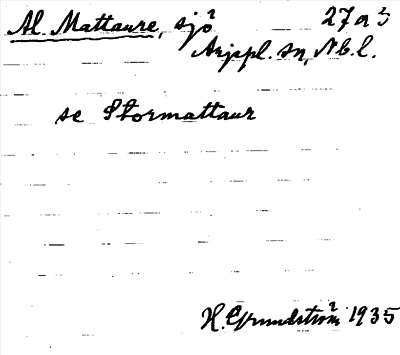 Al. Mattaure, sjö 27 a 3
Arjepl. sn, Nb. l.
se Stormattaur
H. Grundström 1935